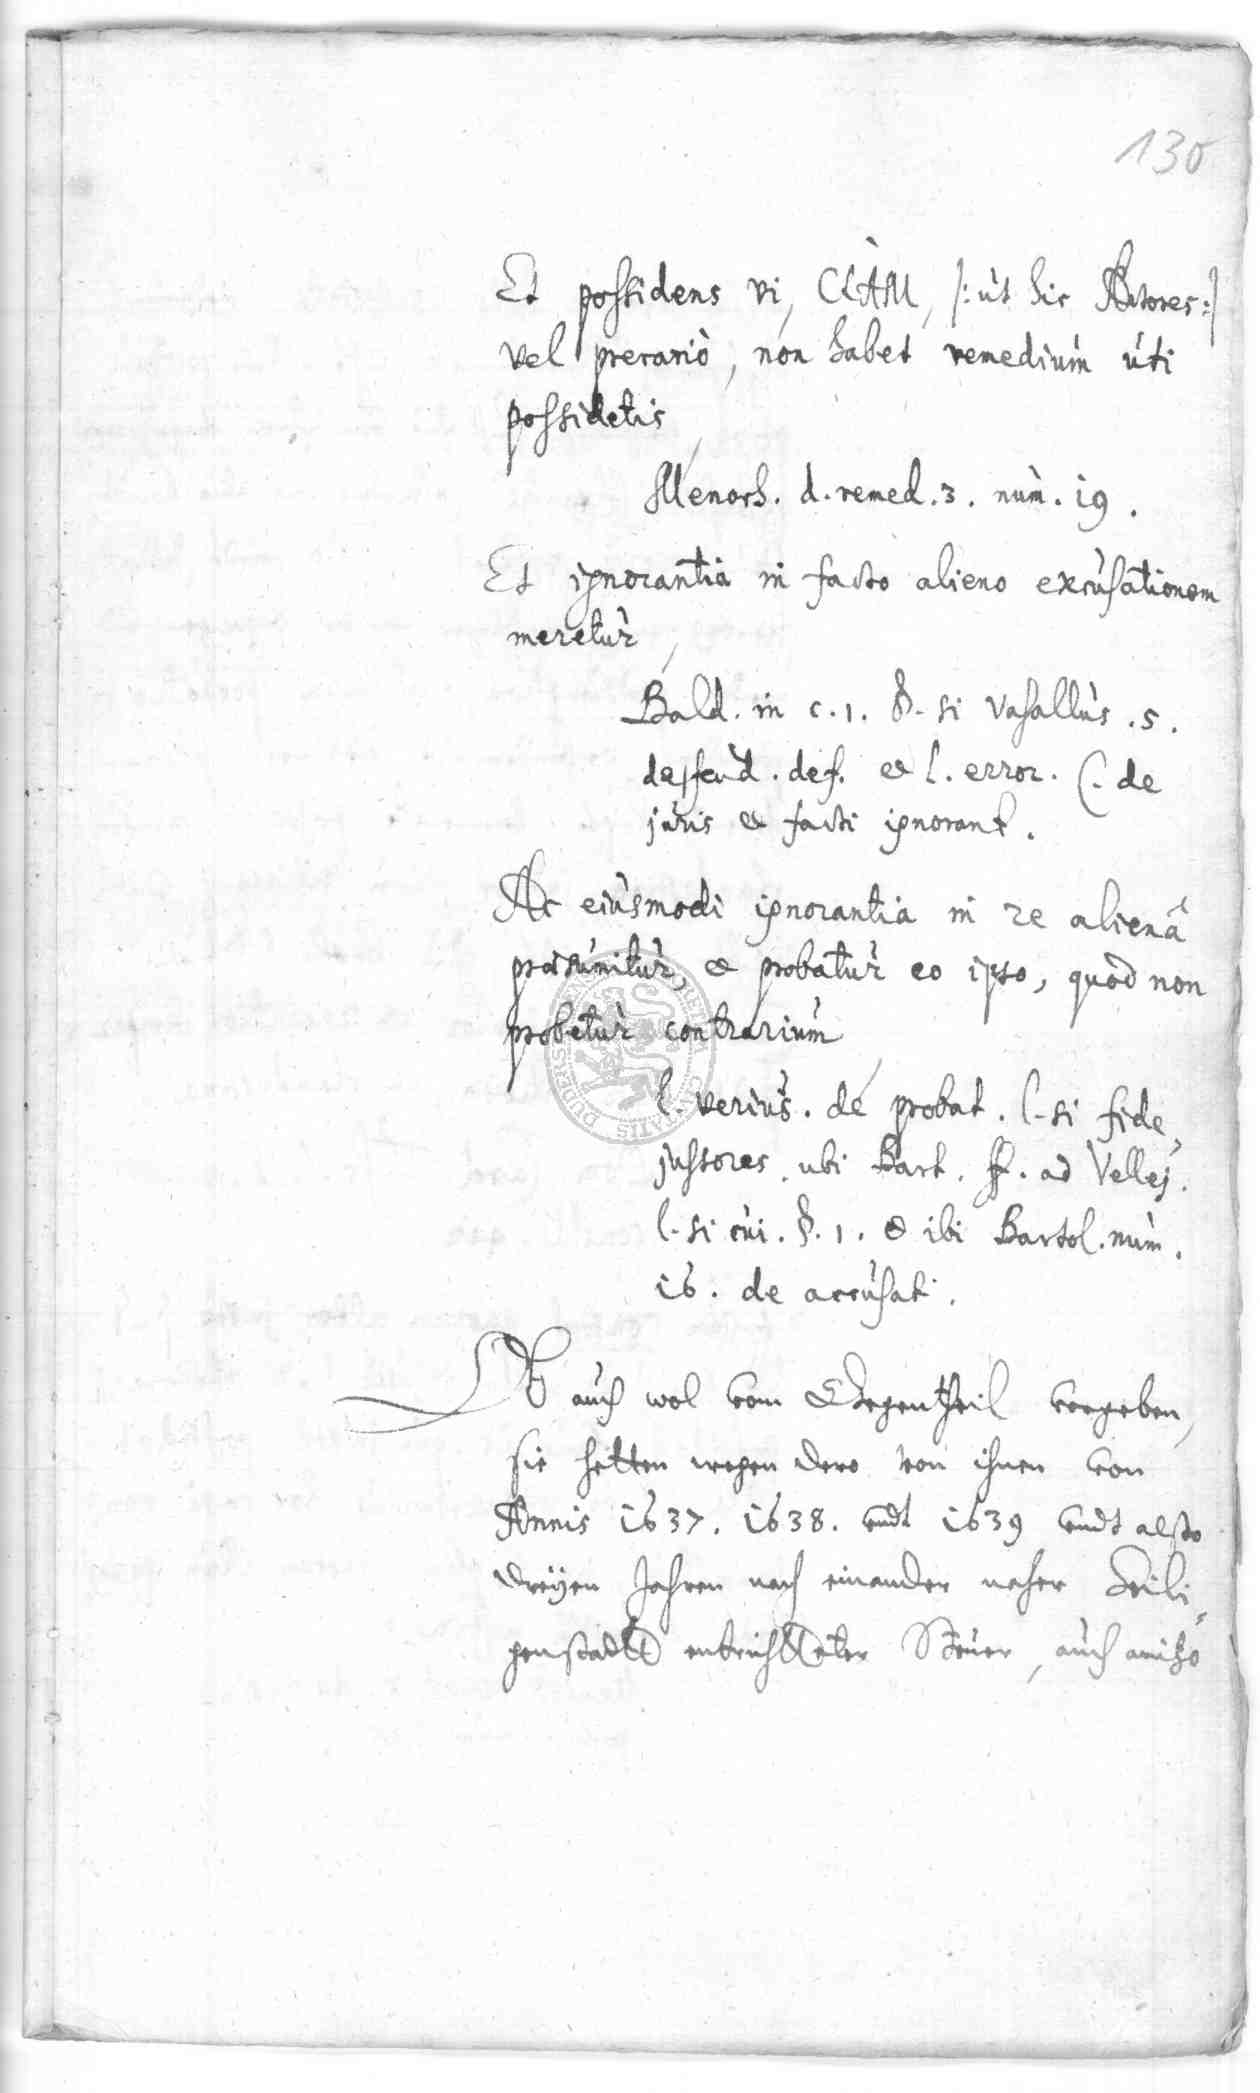 130
Et possidens vi, CLAM, /: ut hic Actores :/
vel precariò, non habet remedium uti
possidetis,
Menoch. d. remed. 3. num. 19.
Et ignorantia in facto alieno excusationem
meretur,
Bald. in c. 1. §. si vasallus. 5.
de feud. def. et l. error. C. de
juris et facti ignorant.
Ac eiusmodi ignorantia in re alienâ
præsumitur, et probatur eo ipso, quod non
probetur contrarium,
l. verius. de probat. l. si fide,
jussores. ubi Bart. ff. ad Vellej.
l. si cui. §. 1. et ibi Bartol. num.
16. de accusati.
Ob auch wol vom Gegentheil vorgeben,
sie hetten wegen dero von ihnen von
Annis 1637. 1638. undt 1639 undt also
dreÿen Jahren nach einander naher Heili,
genstadt entrichteter Steuer, auch anitzo